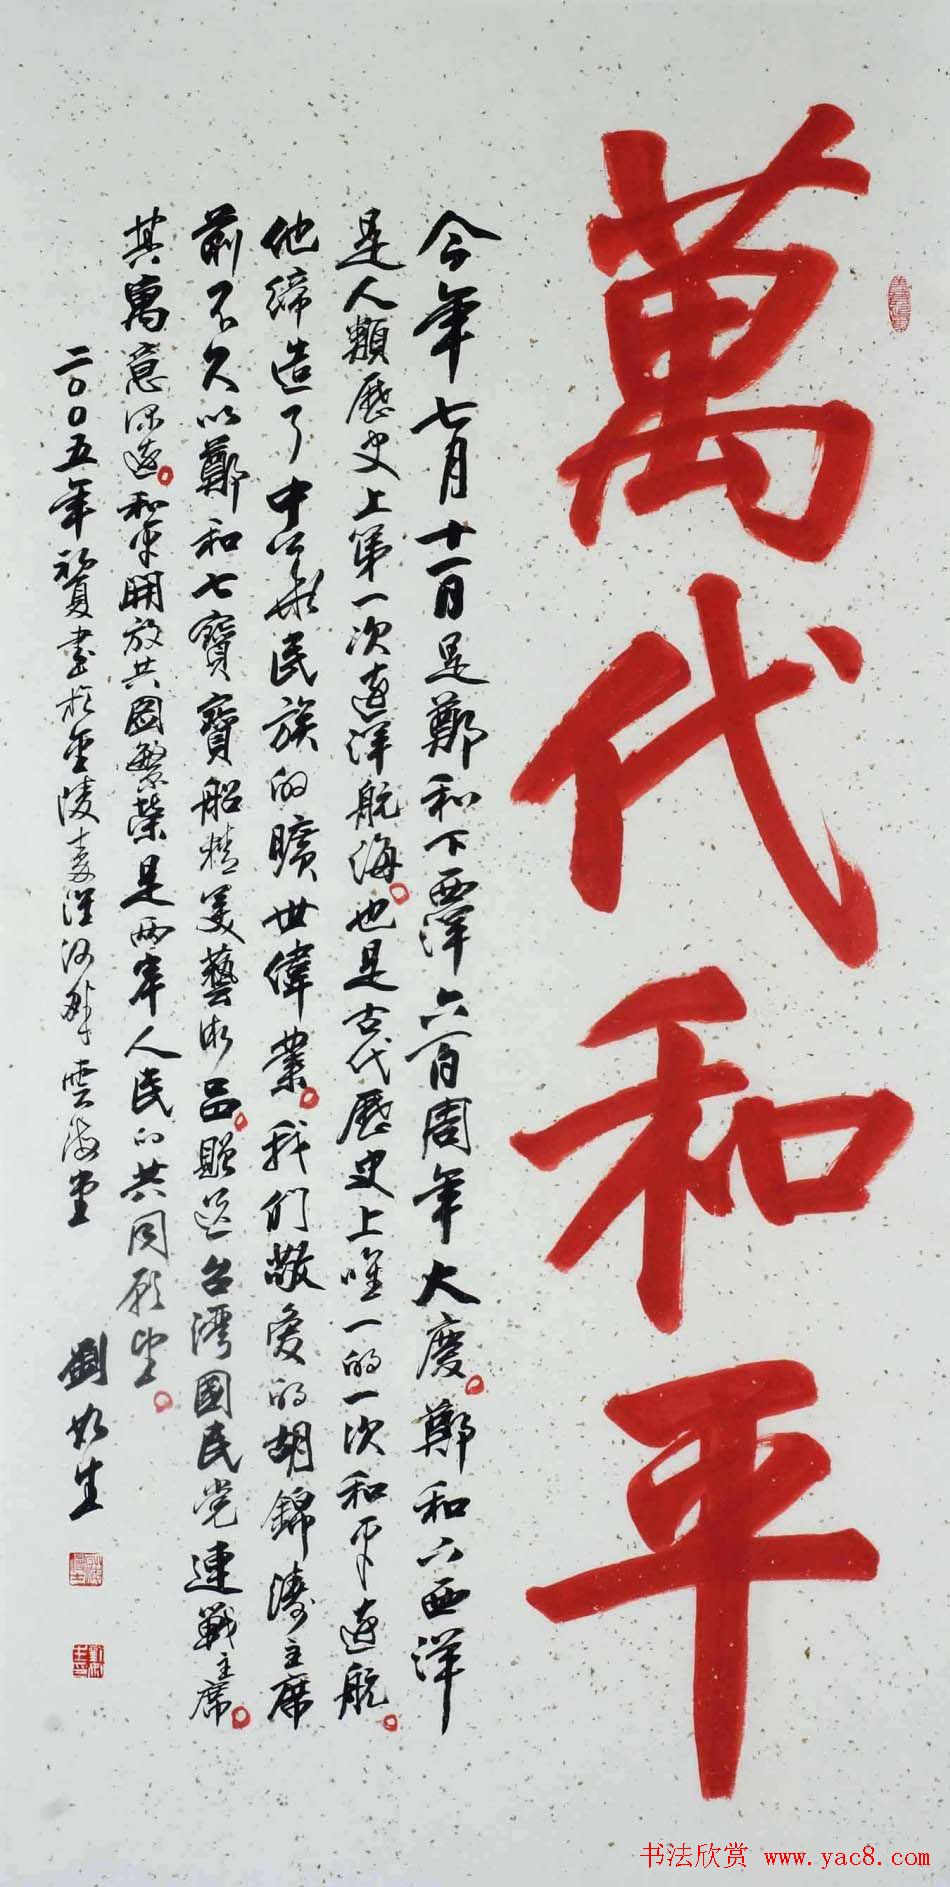 萬代和平
今年七月十一日是鄭和下西洋六百周年大慶。鄭和下西洋
是人類歷史上第一次遠洋航海。也是古代歷史上唯一的一次和平遠航。
他締造了中華民族的曠世偉業。我们敬爱的胡錦濤主席
前不久以鄭和七寶寶船精美藝術品。贈送台湾國民党連戰主席。
其寓意深遠。和平開放共圖繁榮是兩岸人民的共同願望。
二〇〇五年初夏書於金陵秦淮河畔雲海堂 劉如生
书法欣赏 www.yac8.com